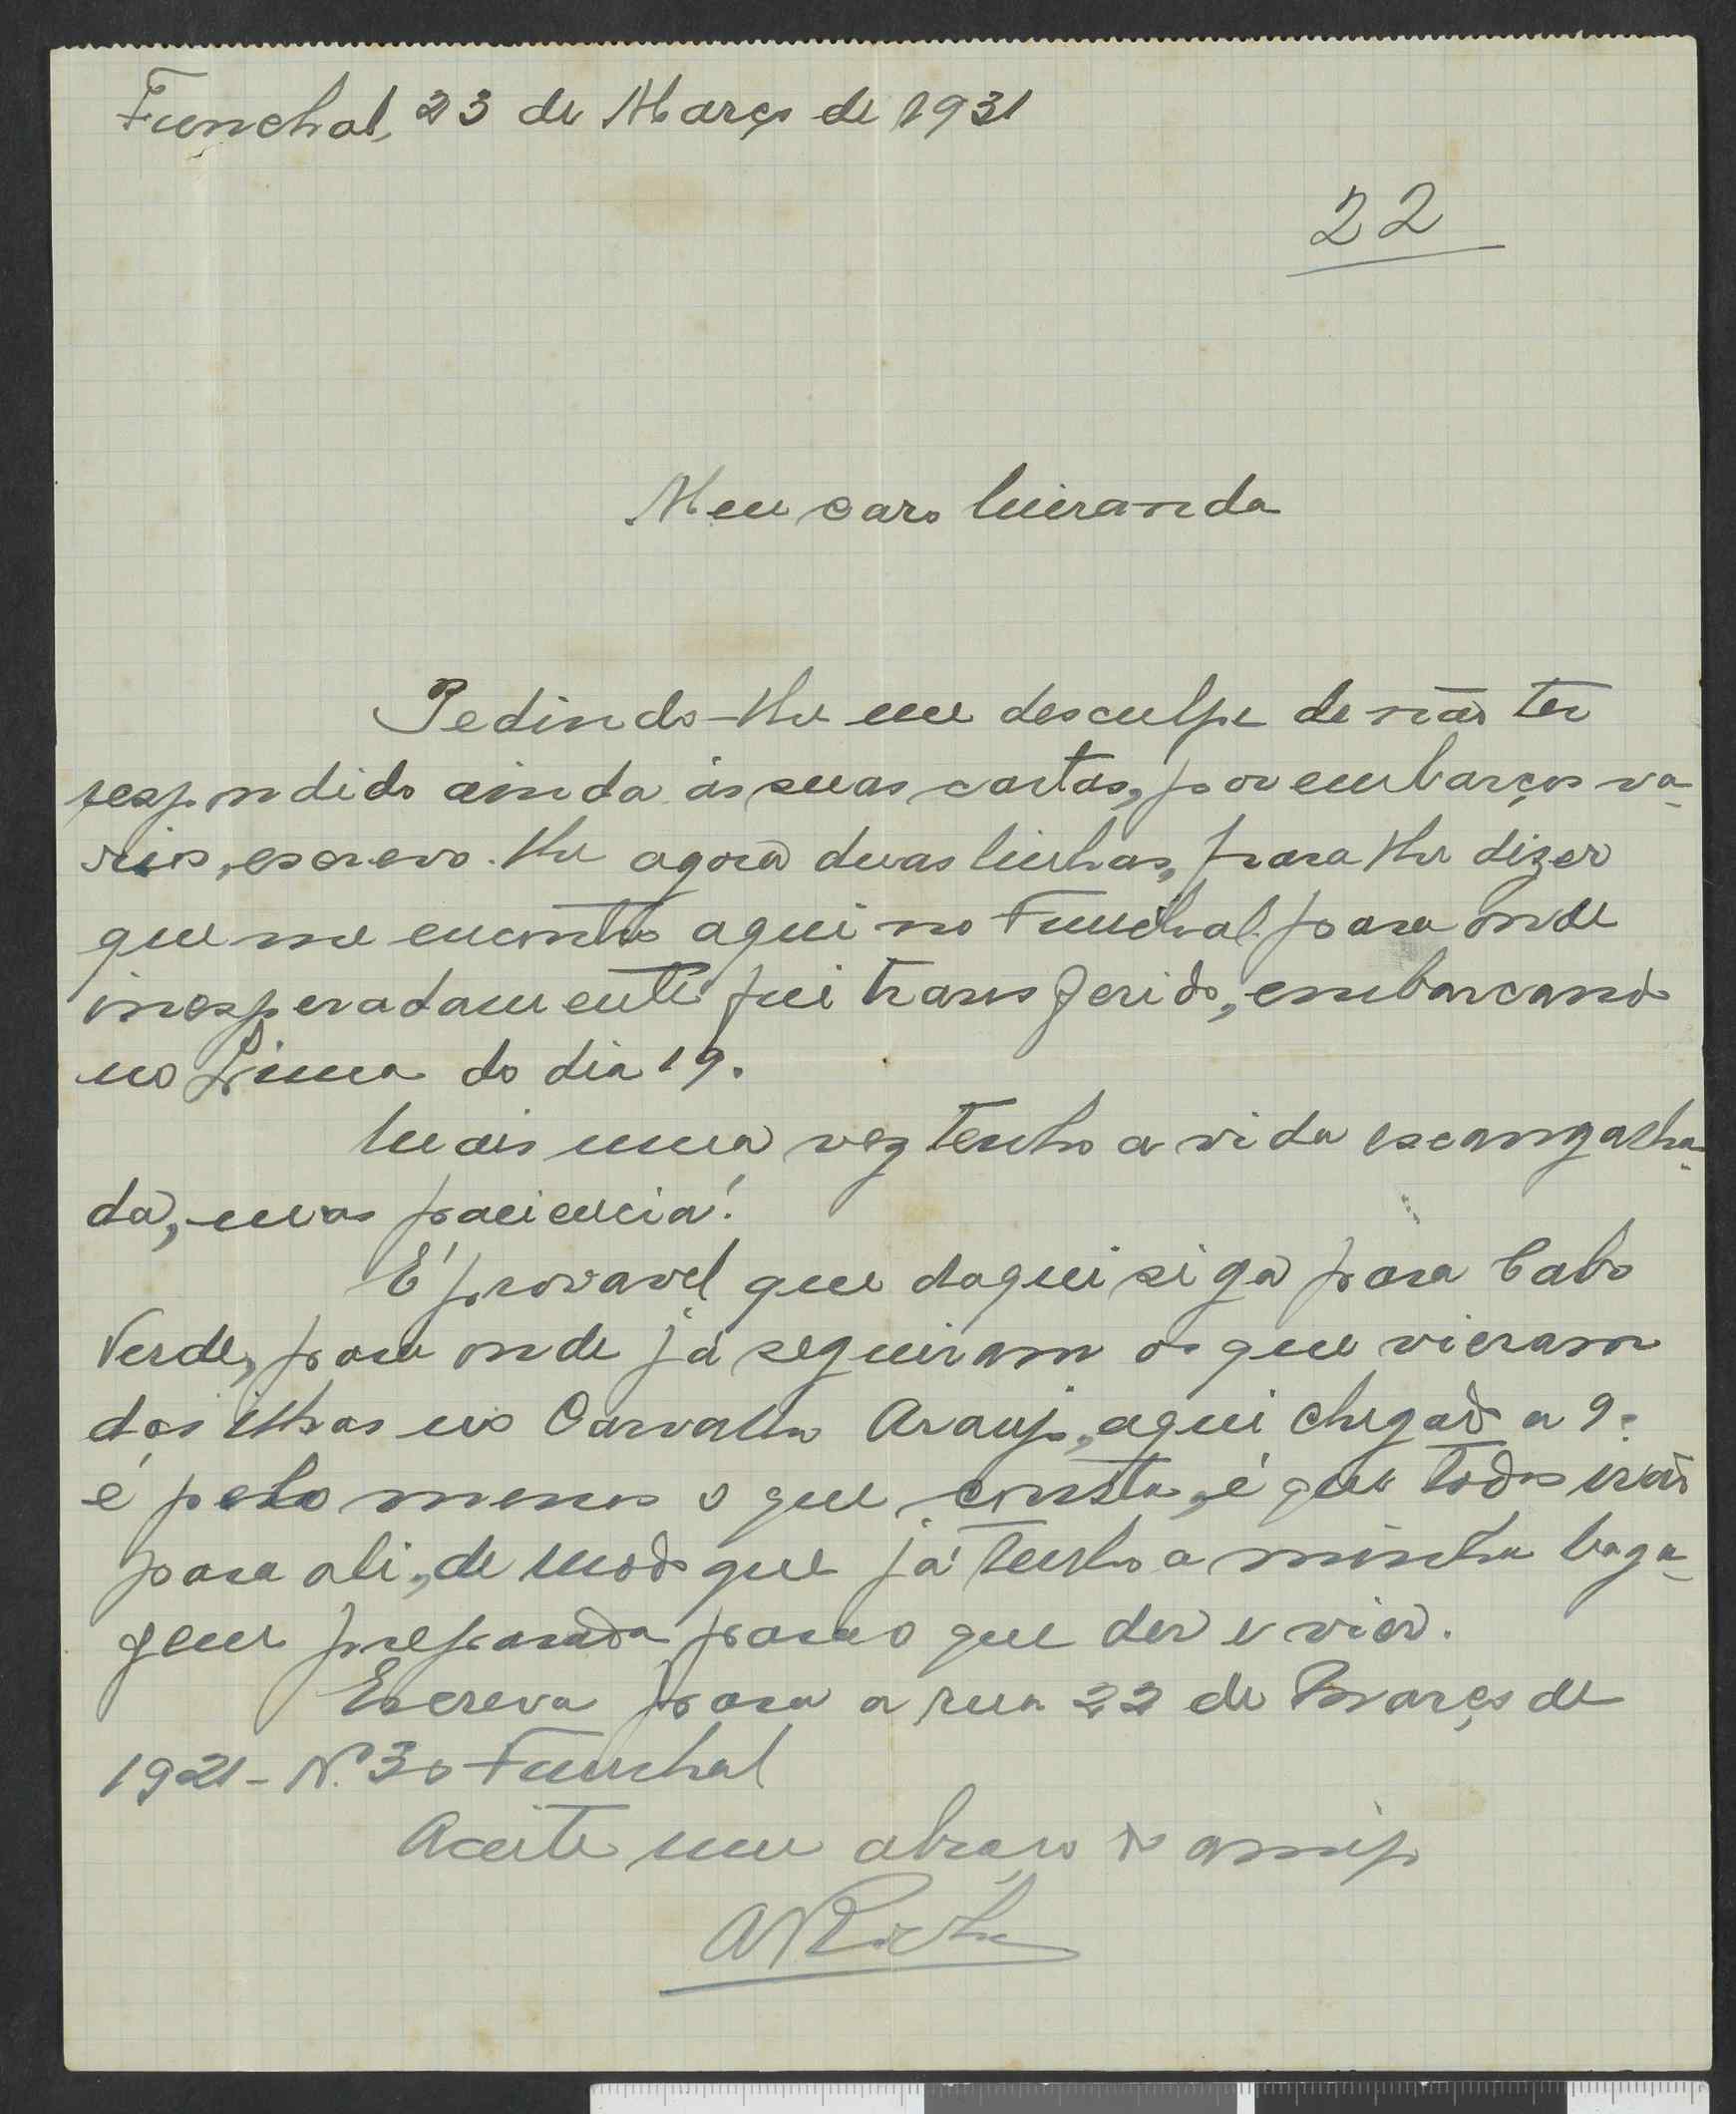 Funchal, 23 de Março de 1931
22
Meu caro Miranda
Pedindo-lhe me desculpe de não ter
respondido ainda ás suas cartas, por embarços va-
rios, escrevo-lhe agora duas linhas, para lhe dizer
que me encontro aqui no Funchal para onde
inesperadamente fui transferido, embarcando
no Lima do dia 19.
Mais uma vez tenho a vida escangalha-
da, mas paciencia!
E' provavel que daqui siga para Cabo
Verde, para onde já seguiram os que vieram
das ilhas no Carvalho Araujo, aqui chegado a 9:
é pelo menos o que consta, é que todos irão
para ali, de modo que já tenho a minha baga-
gem preparada para o que der e vier.
Escreva para a rua 22 de Março de
1921 - N. 30 Funchal
Aceite um abraço do amigo